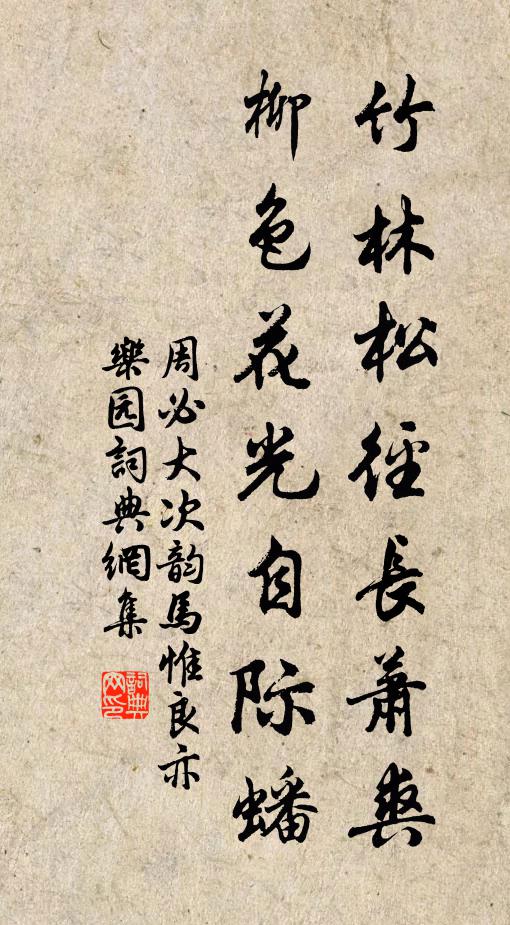 竹林松径長蕭爽
柳色花光自际蟠
周必大次韵馬惟良亦
樂园詞典網集
詞典
网印